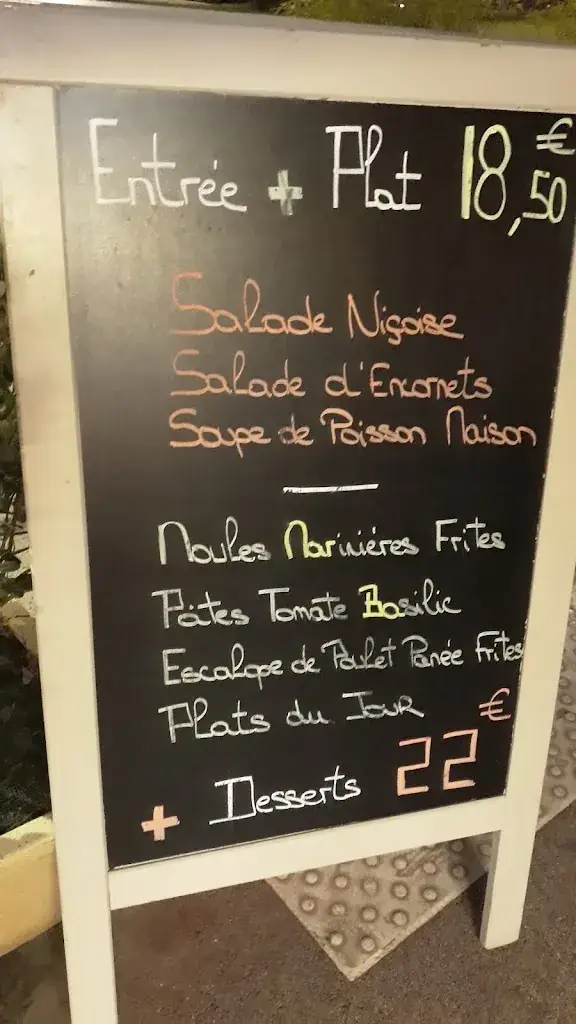 Entrée + Plat 18,50 €
Salade Niçoise
Salade d'Encornets
Soupe de Poisson Maison
Moules Marinières Frites
Pâtes Tomate Basilic
Escalope de Poulet Panée Frites
Plats du Jour
+ Desserts 22 €